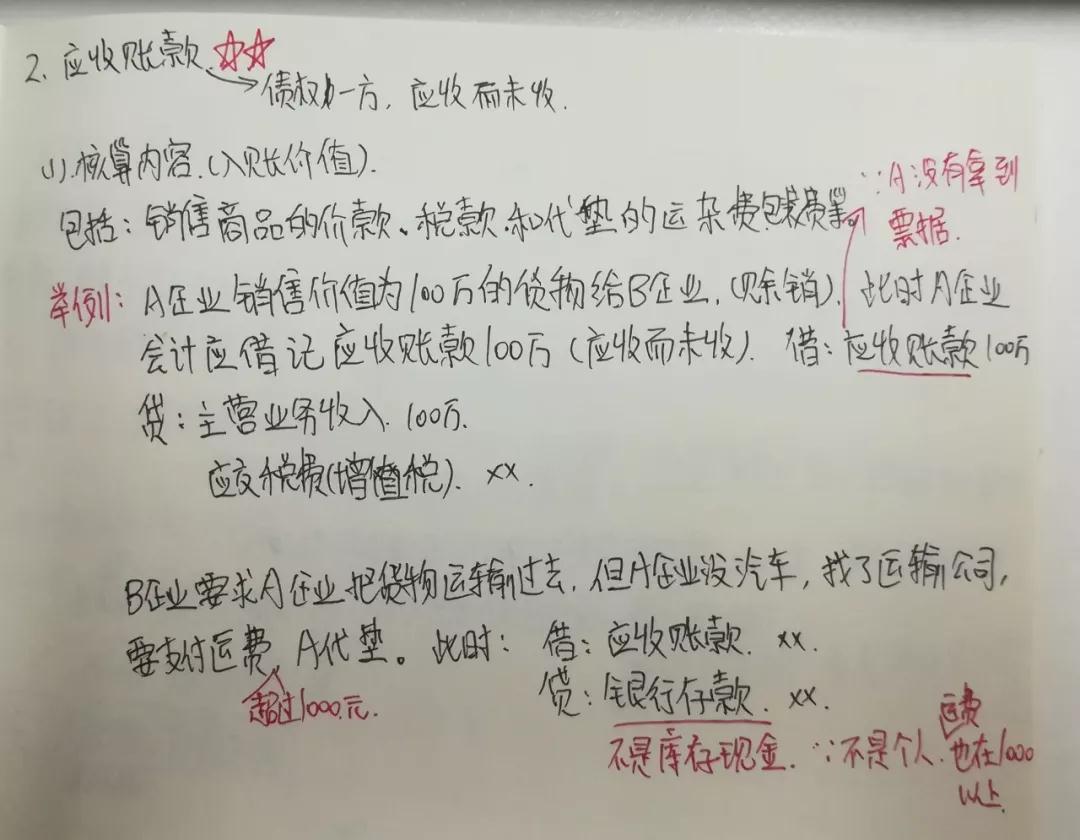 2. 应收账款 ☆☆
→债权一方, 应收而未收.
(1).核算内容.(入账价值).
包括: 销售商品的价款、税款.和代垫的运杂费包装费等
∵A没有拿到
票据.
举例: A企业销售价值为100万的货物给B企业, (赊销). 此时A企业
会计应借记应收账款100万 (应收而未收). 借: 应收账款100万
贷: 主营业务收入. 100万.
应交税费(增值税). xx.
B企业要求A企业把货物运输过去, 但A企业没汽车, 找了运输公司,
要支付运费, A代垫。此时: 借: 应收账款. xx.
超过1000元.
贷: 银行存款. xx.
不是库存现金. ∵不是个人. 运费也在1000
以上.